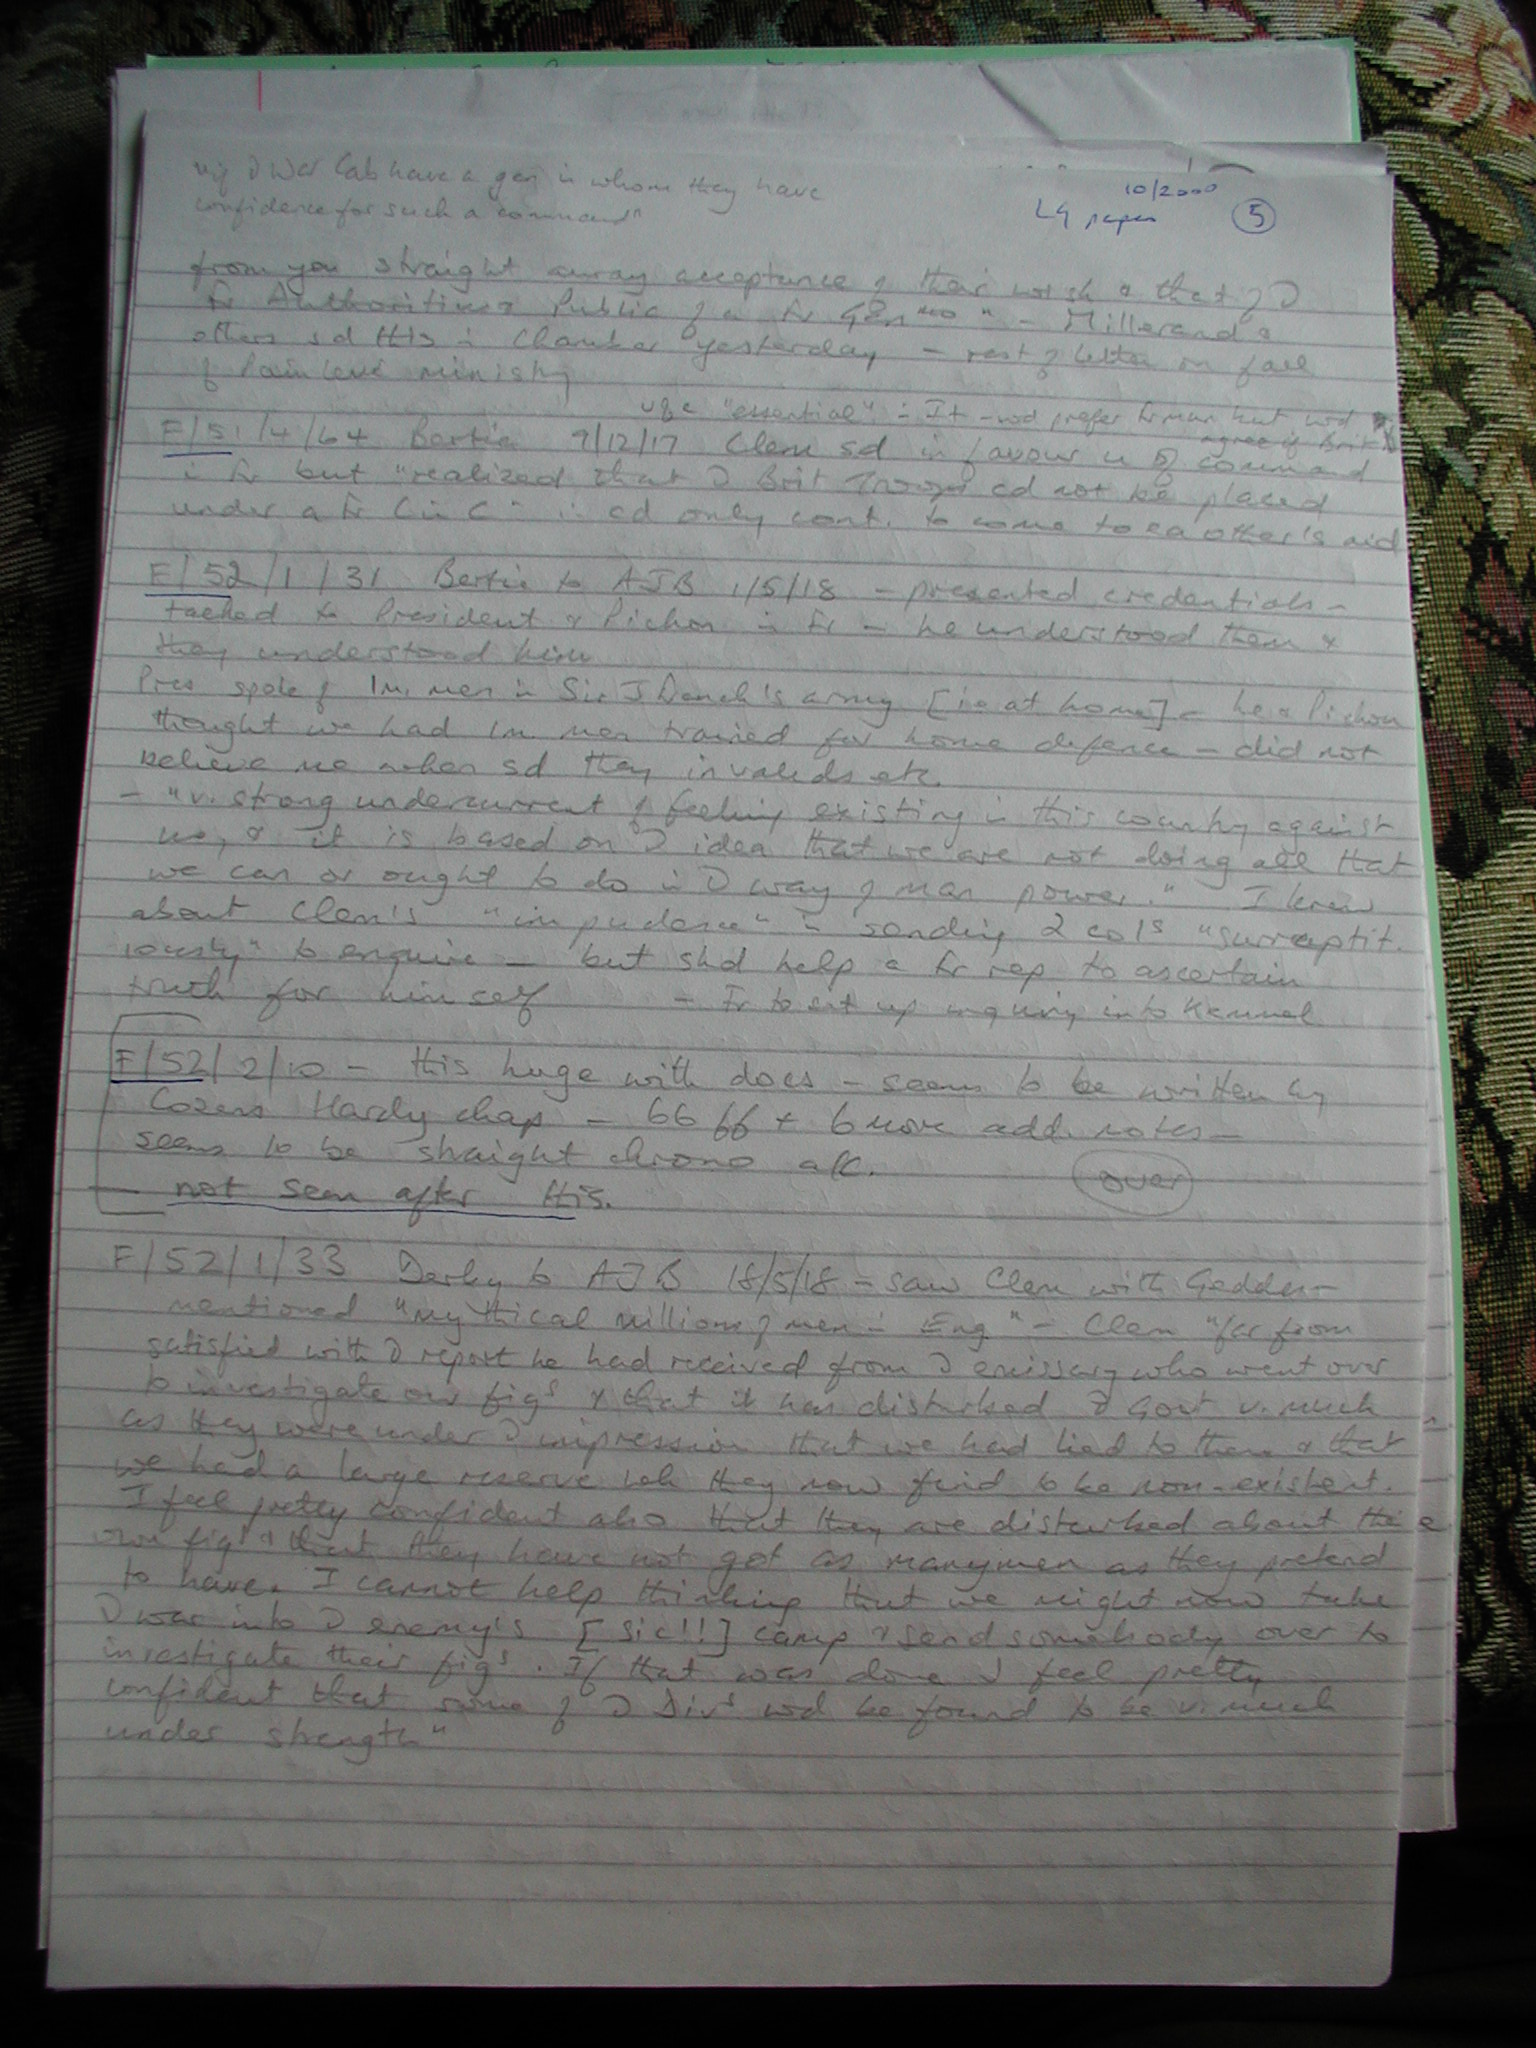 10/2000
LG papers 5
if D War Cab have a gen in whom they have
confidence for such a command"
from you straight away acceptance of their wish & that of D
Fr Authorities & Public of a Fr " - Millerand &
others sd this in Chamber yesterday - rest of letter on fall
of Painlevé ministry
"essential" - It - wd prefer Frman but wd
agree if Brit
F/51/4/64 Bertie 9/12/17 Clem sd in favour u of command
in Fr but "realized that D Brit Troops cd not be placed
under a Fr C in C - cd only cont. to come to ea other's aid
F/52/1/31 Bertie to AJB 1/5/18 - presented credentials -
talked to President & Pichon in Fr - he understood them &
they understood him
Pres spoke of 1m. men in Sir J French's army [ie at home] - he & Pichon
thought we had 1m men trained for home defence - did not
believe me when sd they invalids etc.
- "v. strong undercurrent of feeling existing in this country against
us, & it is based on D idea that we are not doing all that
we can or ought to do in D way of man power." I knew
about Clem's "impudence" in sending 2 cols "surreptit.
iously" to enquire - but shd help a Fr rep to ascertain
truth for himself - Fr to set up inquiry into Kemmel
F/52/2/10 - this huge with docs - seems to be written by
Cozens Hardy chap - 66 ff + 6 more add. notes -
seems to be straight chrono a/c.
over
- not seen after this.
F/52/1/33 Derby to AJB 18/5/18 - saw Clem with Geddes -
mentioned "mythical millions of men in Eng" - Clem "far from
satisfied with D report he had received from D emissary who went over
to investigate our figs & that it has disturbed D Govt v. much
as they were under D impression that we had lied to them & that
we had a large reserve wh they now find to be non-existent.
I feel pretty confident also that they are disturbed about their
own figs & that they have not got as many men as they pretend
to have. I cannot help thinking that we might now take
D war into D enemy's [sic!!] camp & send somebody over to
investigate their figs. If that was done I feel pretty
confident that some of D Divs wd be found to be v. much
under strength"